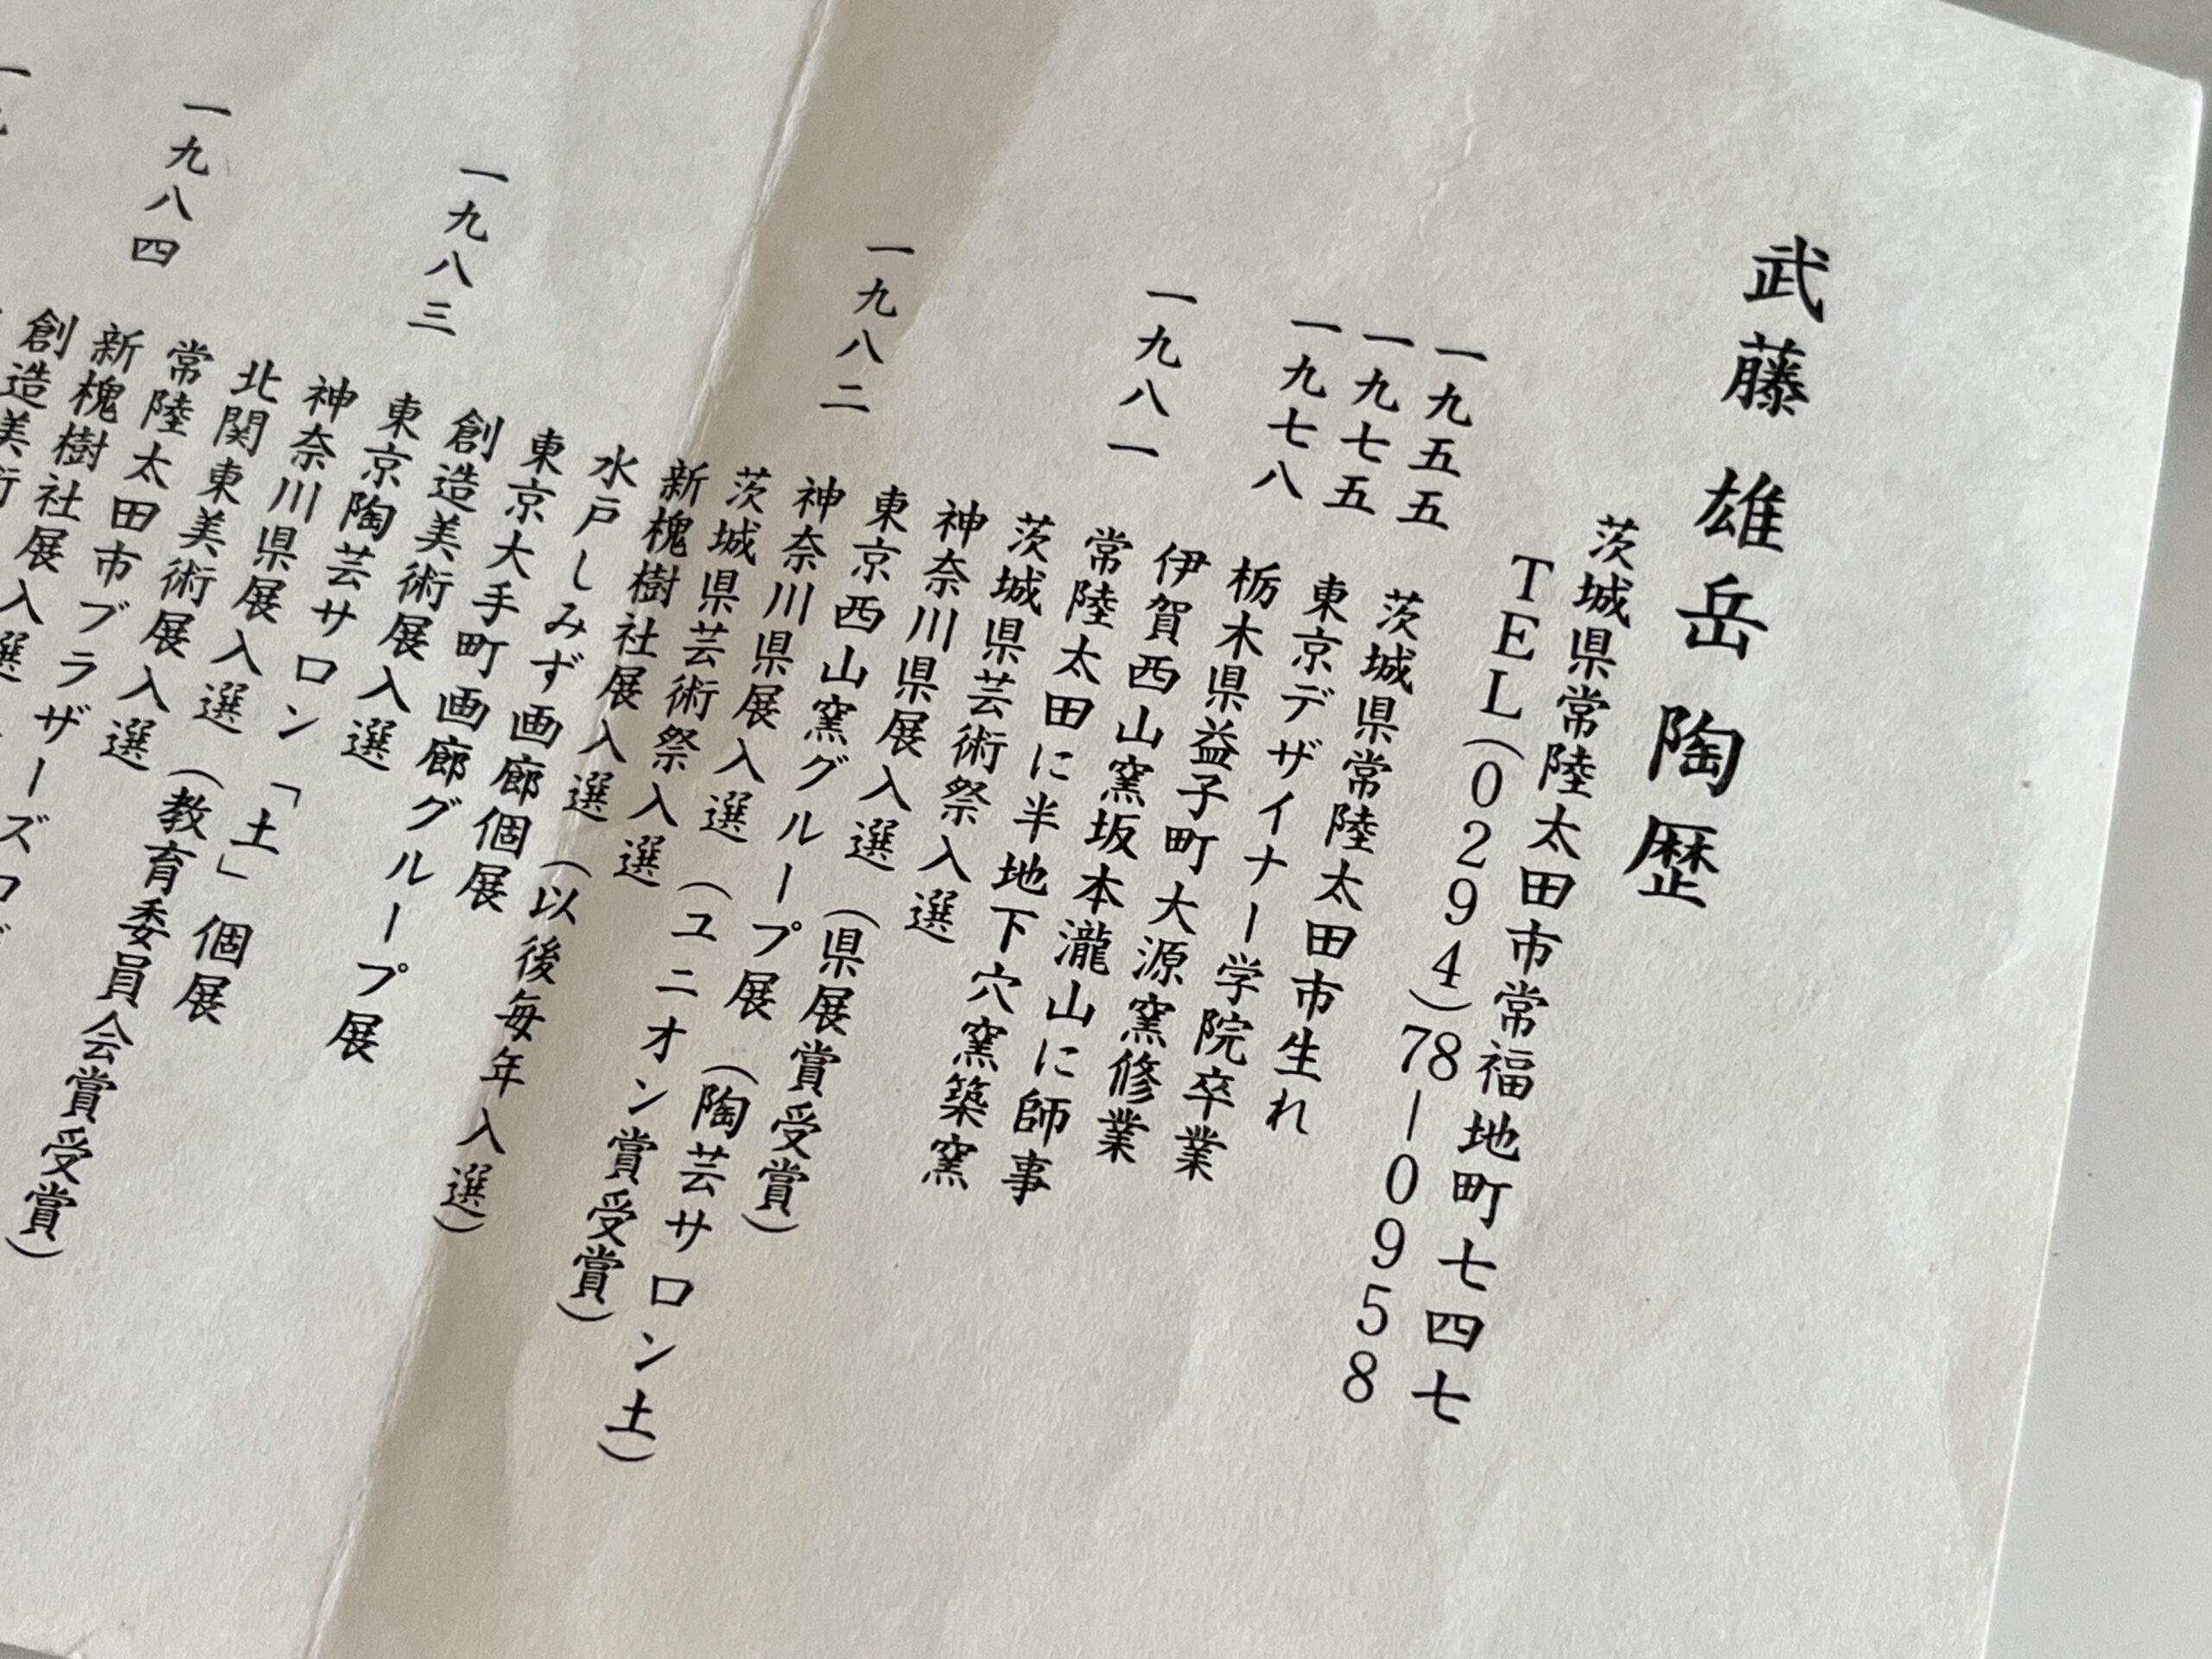 武藤雄岳陶歴
茨城県常陸太田市常福地町七四七
TEL(0294)78-0958
一九五五　茨城県常陸太田市生れ
一九七五　東京デザイナー学院卒業
一九七八　栃木県益子町大源窯修業
伊賀西山窯坂本瀧山に師事
一九八一　常陸太田に半地下穴窯築窯
茨城県芸術祭入選
神奈川県展入選（県展賞受賞）
東京西山窯グループ展（陶芸サロン土）
一九八二　神奈川県展入選（ユニオン賞受賞）
茨城県芸術祭入選
新槐樹社展入選（以後毎年入選）
水戸しみず画廊個展
東京大手町画廊グループ展
創造美術展入選
一九八三　東京陶芸サロン「土」個展
神奈川県展入選（教育委員会賞受賞）
北関東美術展入選
常陸太田市ブラザーズロ
一九八四　新槐樹社展入選
創造美術